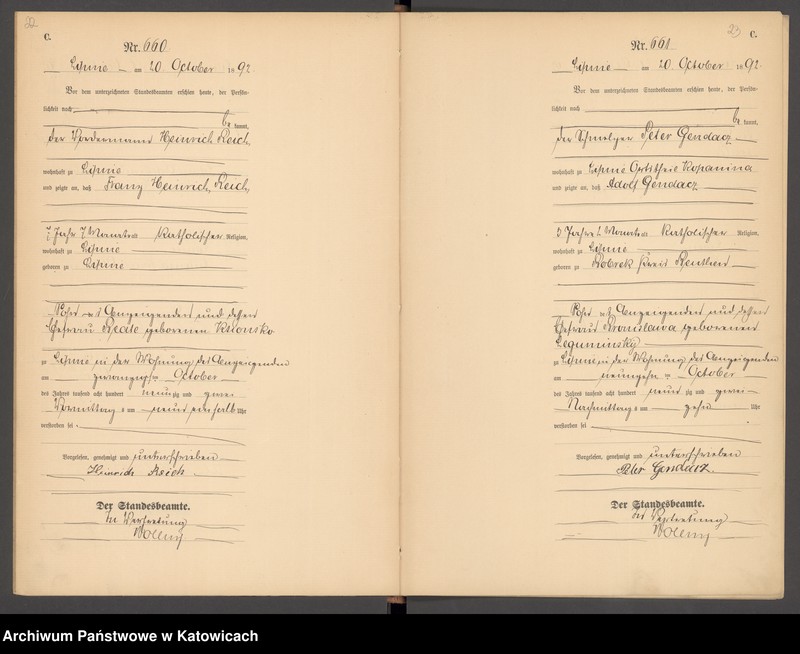 22
C.
Nr. 660
Lipine am 20 October 1892.
Vor dem unterzeichneten Standesbeamten erschien heute, der Persön-
lichkeit nach
be kannt,
der Vordermann Heinrich Reich
wohnhaft zu Lipine
und zeigte an, daß Franz Heinrich Reich,
7 Jahre 7 Monate alt katholischer Religion,
wohnhaft zu Lipine
geboren zu Lipine
Sohn des Anzeigenden und dessen
Ehefrau Beate geborenen
zu Lipine in der Wohnung des Anzeigenden
am zwanzigsten October
des Jahres tausend acht hundert neunzig und zwei
Vormittags um neun einhalb Uhr
verstorben sei
Vorgelesen, genehmigt und unterschrieben
Heinrich Reich
Der Standesbeamte.
In Vertretung
Wolluy
23
C.
Nr. 661
Lipine am 20 October 1892.
Vor dem unterzeichneten Standesbeamten erschien heute, der Persön-
lichkeit nach
be kannt,
der Schmelzer Peter Gendacz
wohnhaft zu Lipine Ortstheil Kopanina
und zeigte an, daß Adolf Gendacz
Jahre Monate alt katholischer Religion,
wohnhaft zu Lipine
geboren zu Bobrek Kreis Beuthen
Sohn des Anzeigenden und dessen
Ehefrau Bronislawa geborenen
Leguminsky
zu Lipine in der Wohnung des Anzeigenden
am neunzehnten October
des Jahres tausend acht hundert neunzig und zwei
Nachmittags um zehn Uhr
verstorben sei
Vorgelesen, genehmigt und unterschrieben
Peter Gendacz
Der Standesbeamte.
In Vertretung
Archiwum Państwowe w Katowicach